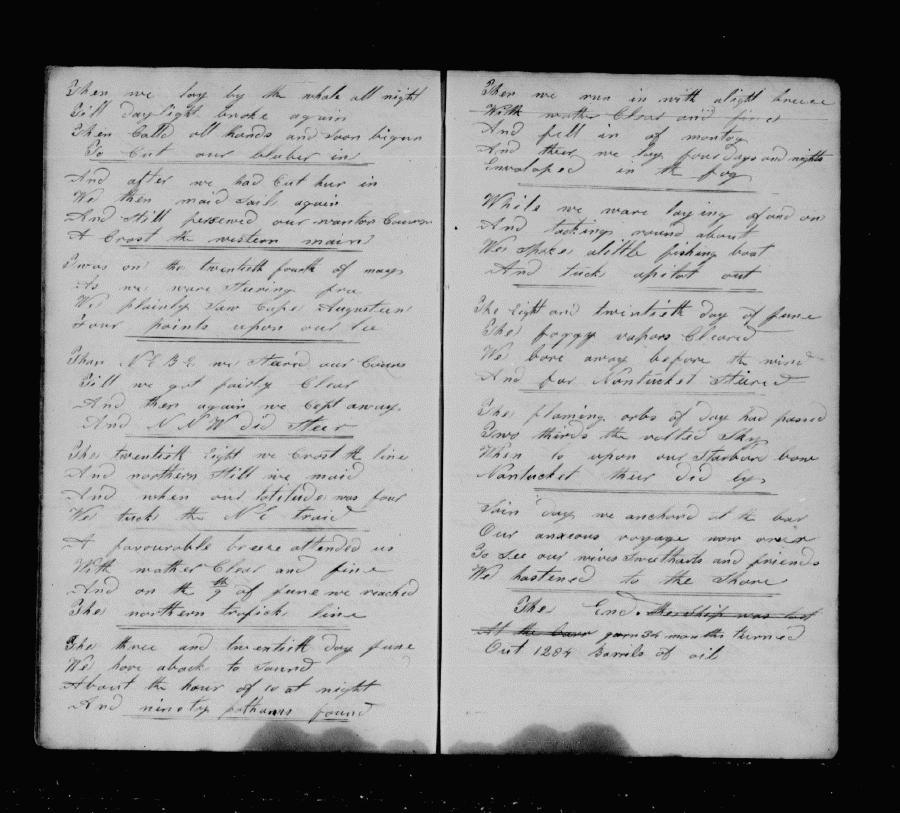 Then we lay by the whale all night
Till daylight broke again
Then Calld all hands and soon bigun
To Cut our bluber in
And after we had Cut hur in
We then maid Sail again
And still persewed our wanton Course
A Crost the western main
Twas on the twentieth fourth of may
As we ware steering free
We plainly Saw Cape Augusteen
Four points upon our lee
Than N E B E we Steard our Course
Till we got fairly Clear
And then again we kept away
And N N W did Steer
The twentieth Eight we Crost the line
And northern Still we maid
And when our latitude was four
We tuck the N E traid
A favourable breeze attended us
With wather Clear and fine
And on the 9th of June we reached
The northern tropick line
The three and twentieth day June
We hove aback to Sound
About the hour of 10 at night
And ninety fathams found
Then we run in with alight breeze
With wather Clear and fine
And fell in of montog
And their we lay four days and nights
Envaloped in the fog
While we ware laying of and on
And tacking round about
We spoke alittle fishing boat
And tuck apilot out
The Eight and twentieth day of June
The foggy vapors Cleared
We bore away before the wind
And for Nantucket Steered
The flaming orbs of day had passed
Two thirds the velted Sky
When lo upon our Starbord bow
Nantucket their did ly
day we anchord at the bar
Our anxious voyage now oner
To See our wives Sweetharts and friends
We hastened to the Shore
The End. the Ship was lost
At the barr gorn 34 months turned
Out 1284 Barrils of oil